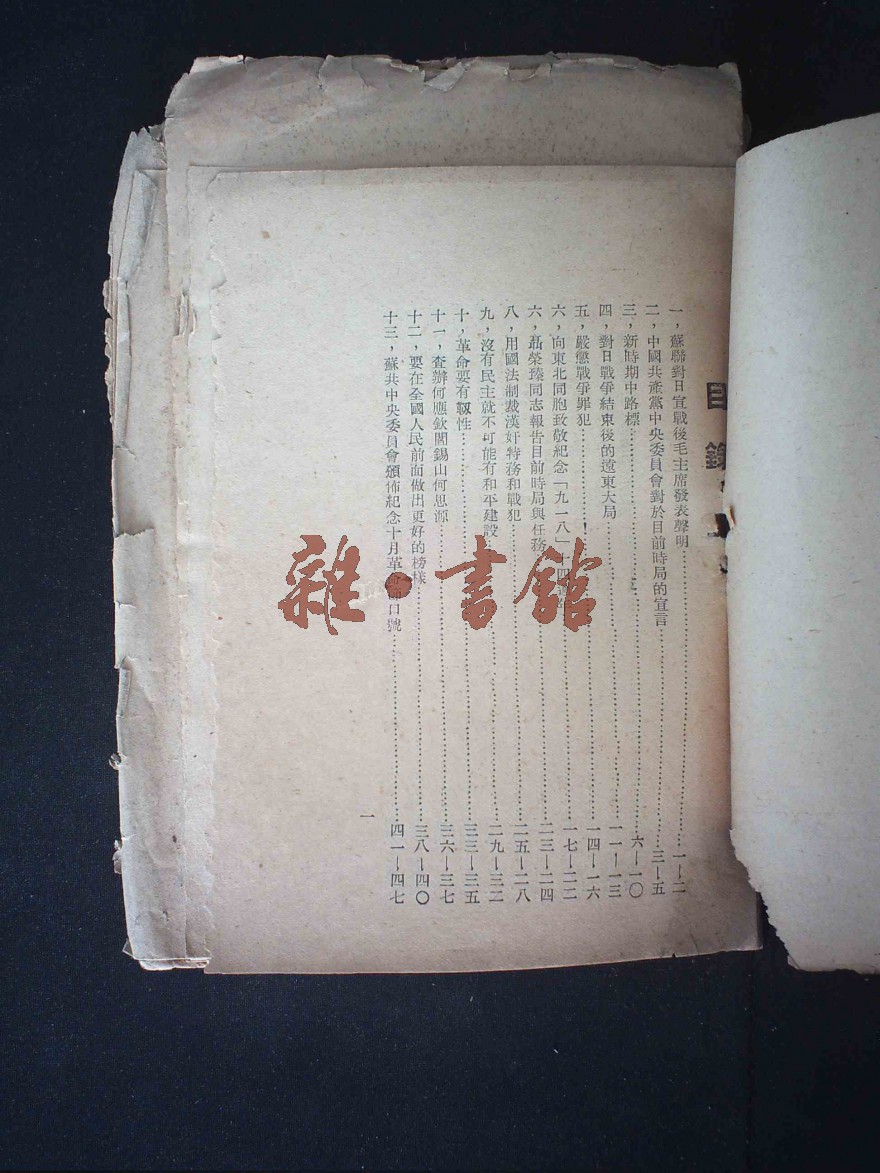 目錄
一，蘇聯對日宣戰後毛主席發表聲明……一—二
二，中國共產黨中央委員會對於目前時局的宣言……三—五
三，新時期中路標……六—一〇
四，對日戰爭結束後的遠東大局……一一—一三
五，嚴懲戰爭罪犯……一四—一六
六，向東北同胞致敬紀念「九一八」十四週年……一七—二二
六，聶榮臻同志報告目前時局與任務……二三—二四
八，用國法制裁漢奸特務和戰犯……二五—二八
九，沒有民主就不可能有和平建設……二九—三二
十，革命要有韌性……三三—三五
十一，查辦何應欽閻錫山何思源……三六—三七
十二，要在全國人民前面做出更好的榜樣……三八—四〇
十三，蘇共中央委員會頒佈紀念十月革命節口號……四一—四七
一
雜·書館